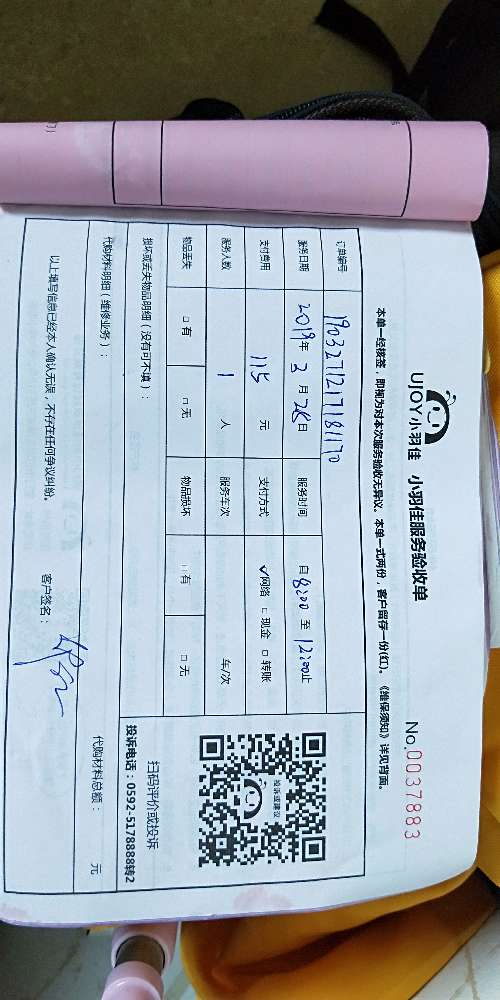 UJOY小羽佳 小羽佳服务验收单
No.0037883
本单一经核签，即视为对本次服务验收无异议。本单一式两份，客户留存一份(红)。《维保须知》详见背面。
订单编号
服务日期 2019年3月28日 服务时间 自8:00至12:00止
支付费用 115元 支付方式 ✓网络 □现金 □转账
服务人数 1人 服务车次 车/次
物品丢失 □有 □无 物品损坏 □有 □无
投诉或建议
扫码评价或投诉
投诉电话：0592-5178888转2
损坏或丢失物品明细（没有可不填）：
代购材料明细（维修业务）：
代购材料总额： 元
以上填写信息已经本人确认无误，不存在任何争议纠纷。
客户签名：